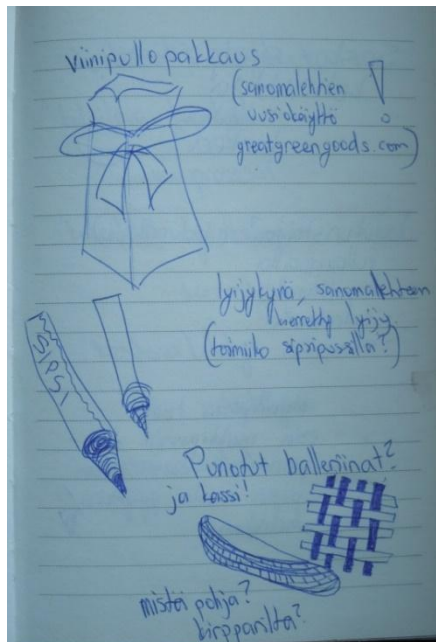 viinipullopakkaus
(sanomalehtien
uusiokäyttö
greatgreengoods.com)
!
lyijykynä, sanomalehteen
kierretty lyijy
(toimiiko sipsipussilla?)
SIPSI
Punotut balleriinat?
ja kassi!
mistä pohja?
kirpparilta?